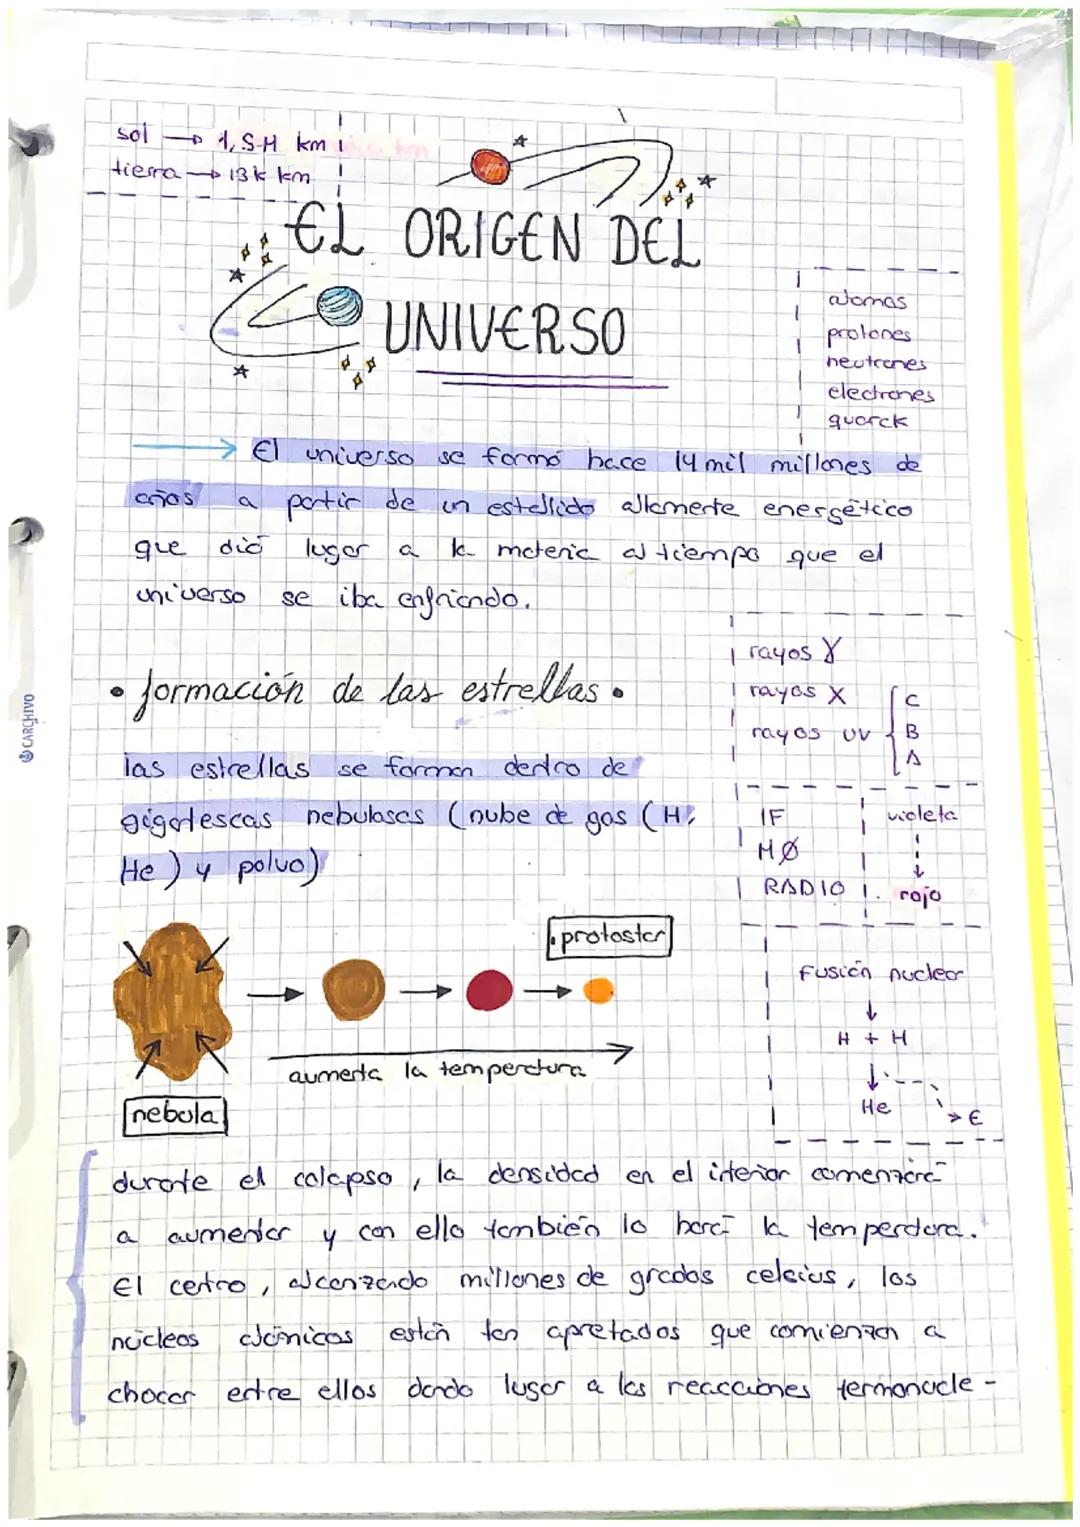 sol → 1,5 M km
tierra → 13k km
EL ORIGEN DEL
UNIVERSO
atomos
protones
neutrones
electrones
quarck
→ El universo se formó hace 14 mil millones de
años a partir de un estallido altamente energético
que dió lugar a la materia al tiempo que el
universo se iba enfriando.
• formación de las estrellas •
las estrellas se forman dentro de
gigatescas nebulosas (nube de gas (H,
He) y polvo)
rayos γ
rayos X
rayos UV { C
B
A
IF
MØ
RADIO
violeta
rojo
.protostar
nebula
aumenta la temperatura
Fusión nuclear
↓
H + H
↓
He → E
durante el colapso, la densidad en el interior comenzará
a aumentar y con ello también lo hará la temperatura.
El centro, alcanzando millones de grados celsius, los
núcleos atómicos están tan apretados que comienzan a
chocar entre ellos dando lugar a las reacciones termonucle-
CARCHIVO